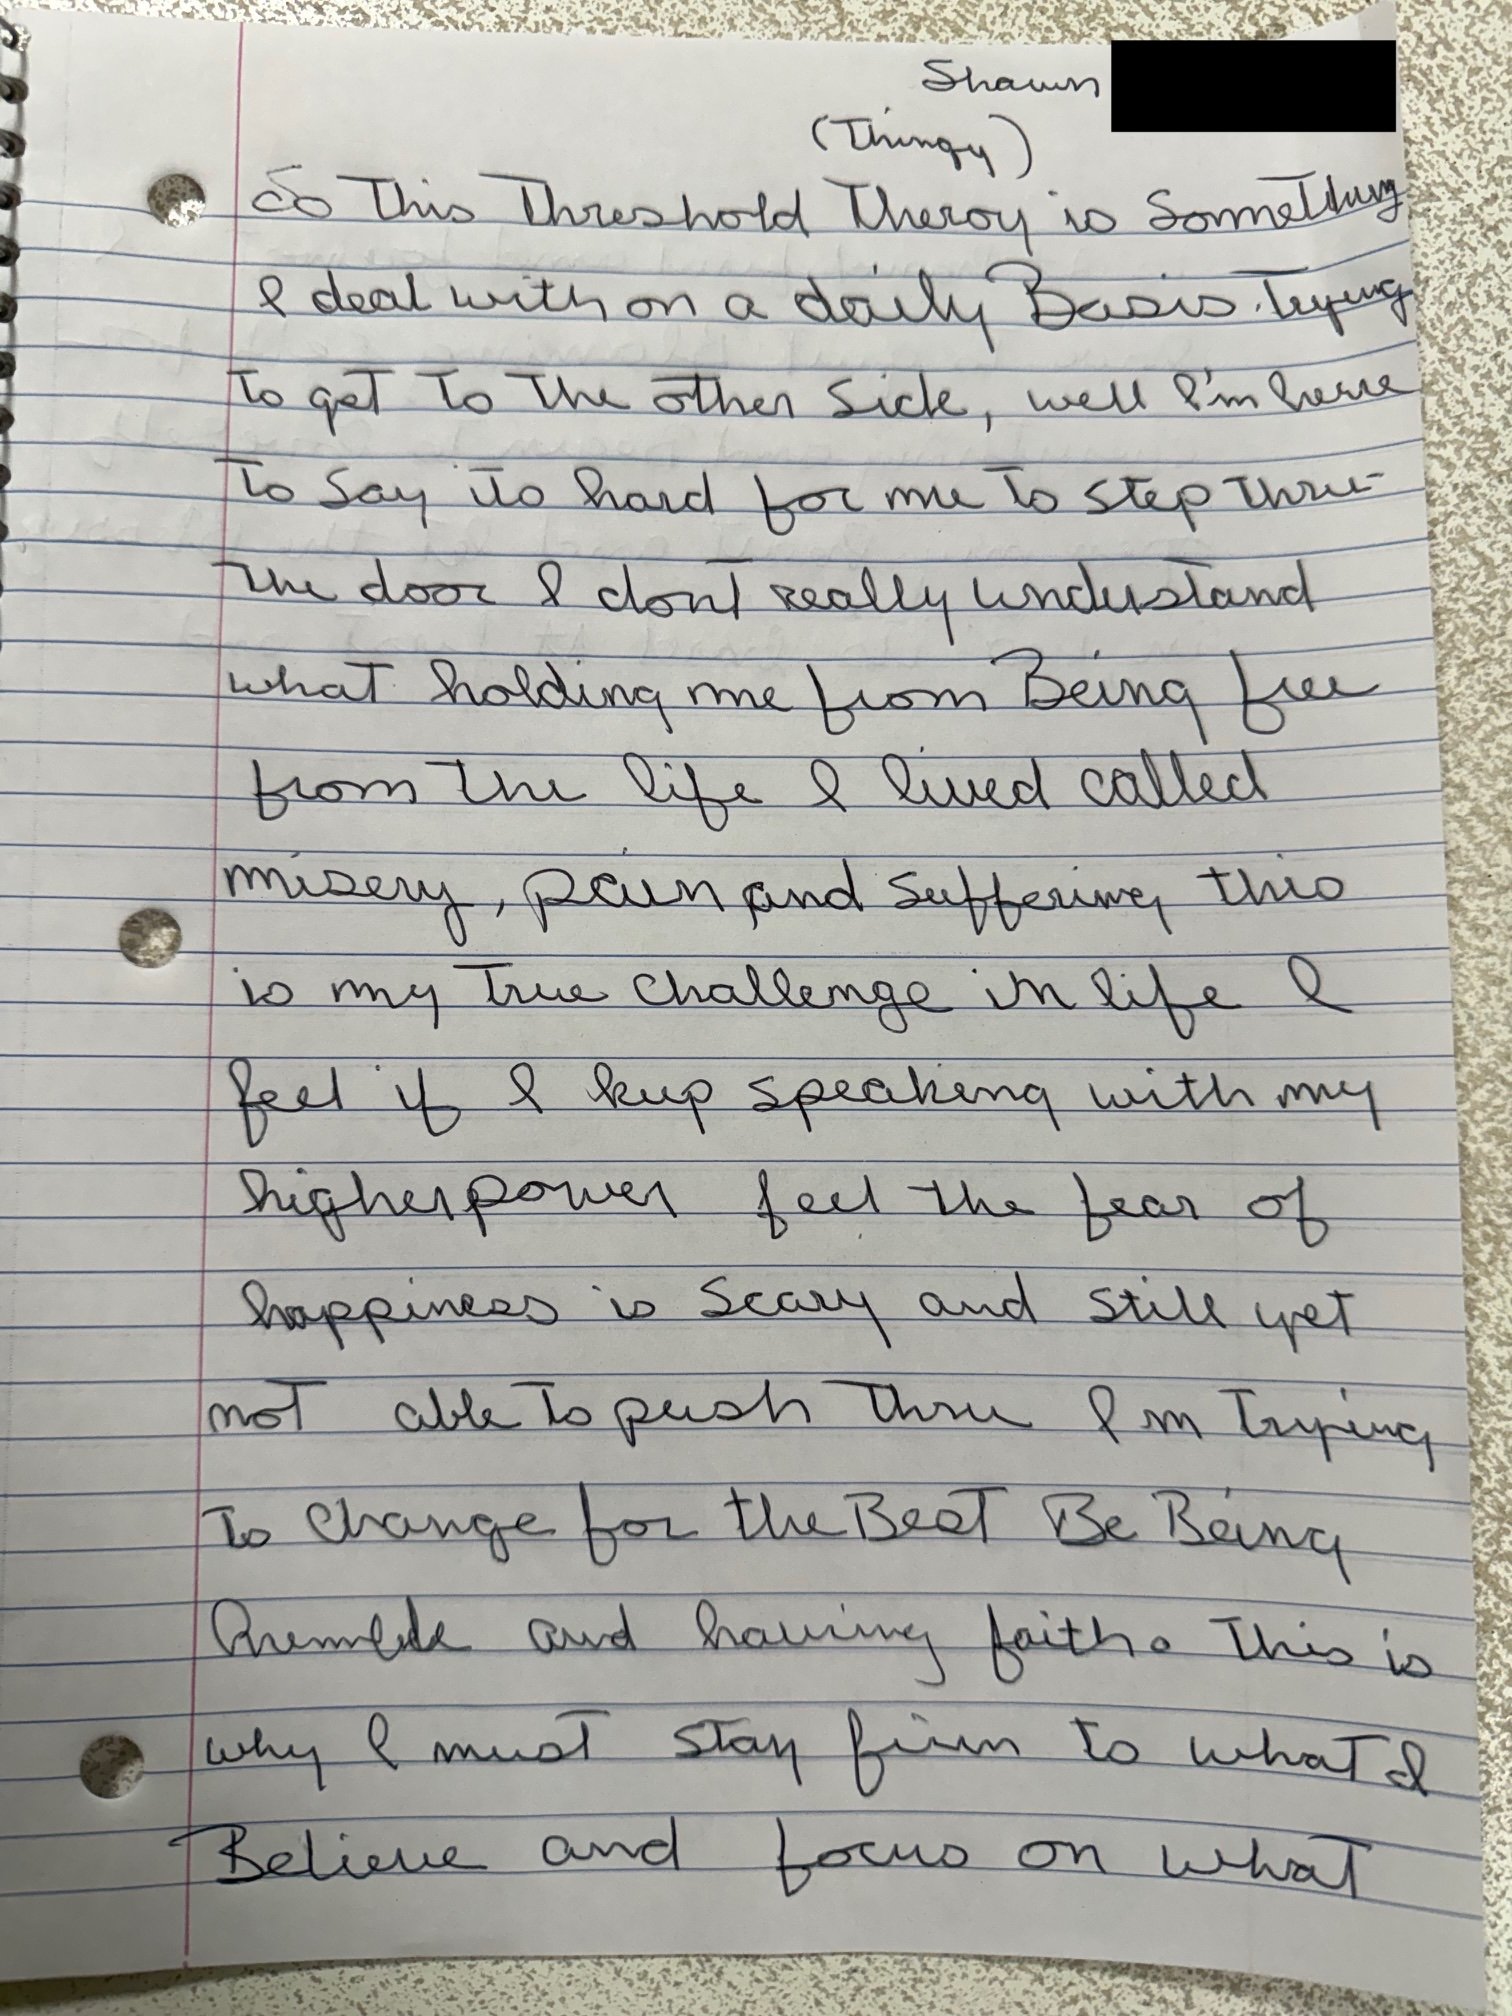 Shawn
(Thingy)
So This Threshold Theroy is Something
I deal with on a daily Basis. Trying
To get To The other side, well I'm here
To say its hard for me To step thru
The door I dont really understand
what holding me from Being free
from the life I lived called
misery, pain, and suffering this
is my True challenge in life I
feel if I keep speaking with my
higher power feel the fear of
happiness is scary and still yet
not able To push Thru I m Trying
To change for the Best Be Being
humble and having faith. This is
why I must stay firm to what I
Believe and focus on what